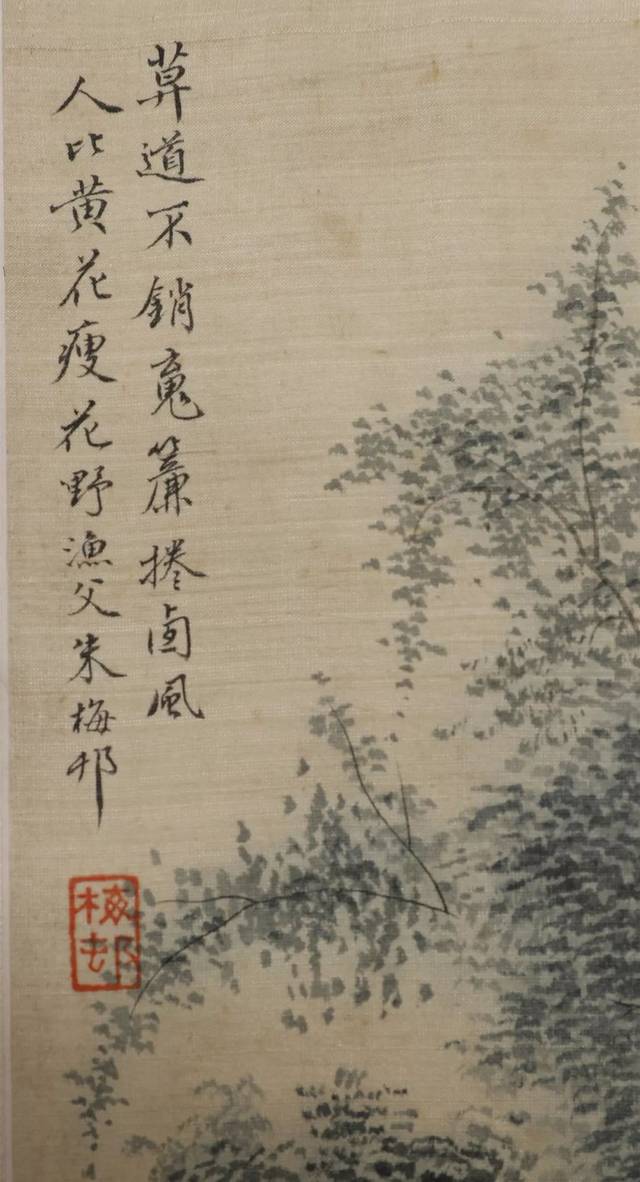 莫道不銷魂簾捲西風
人比黄花瘦花野漁父朱梅邨
梅邨